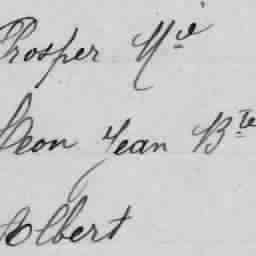 Prosper Mie
Léon Jean Bte
Albert